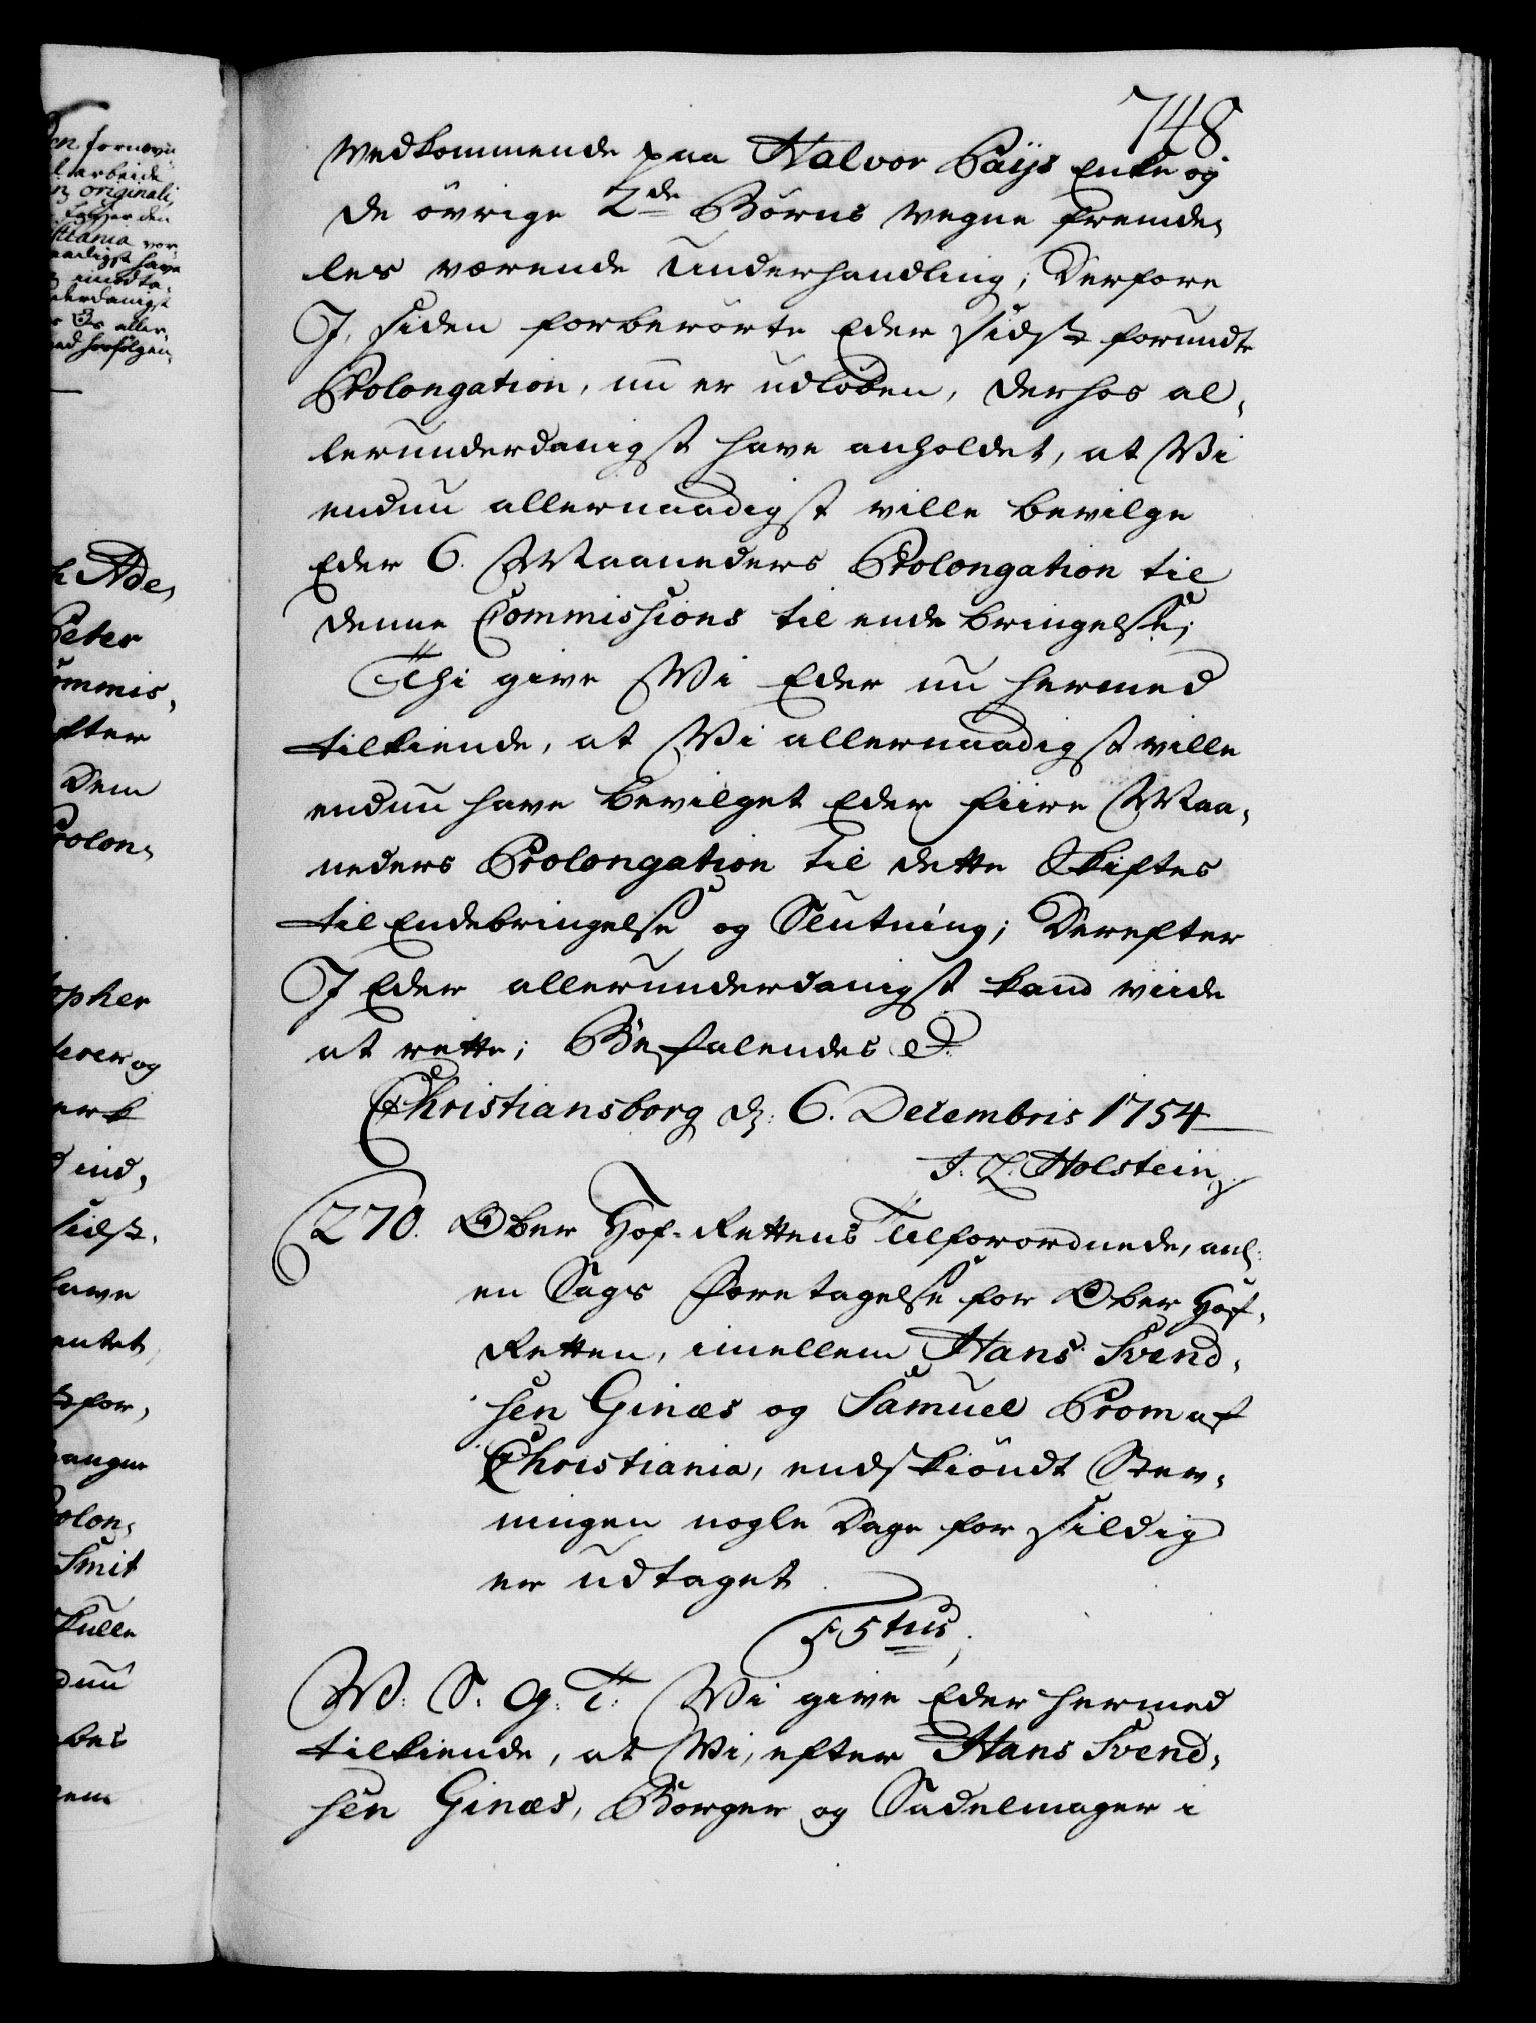 748
Vedkommende paa Halvor Paijs Enke og
de øvrige 2de Børns vegne fremde,
les værende Underhandling; Derfore
I, siden forberørte Eder sidst forundte
Prolongation, nu er udløben, derhos al,
lerunderdanigst have anholdet, at Vi
endnu allernaadigst ville bevilge
Eder 6. Maaneders Prolongation til
denne Commissions til ende bringelse;
Thi give Vi Eder nu hermed
tilkiende, at Vi allernaadigst ville
endnu have bevilget Eder fiire Maa,
neders Prolongation til dette Skiftes
til Endebringelse og Slutning; Derefter
I Eder allerunderdanigst kand viide
at rette; Befalendes
Christiansborg d: 6. Decembris 1754
J: L: Holstein
270. Ober Hof-Rettens Tilforordnede, anl:
en Sags Foretagelse for Ober Hof,
Retten, imellem Hans Svend,
sen Ginæs og Samuel Prom af
Christiania, endskiøndt Stev,
ningen nogle Dage for sildig
er udtaget.
F 5tus
V. S. G. T: Vi give Eder hermed
tilkiende, at Vi, efter Hans Svend,
sen Ginæs, Borger og Sadelmager i